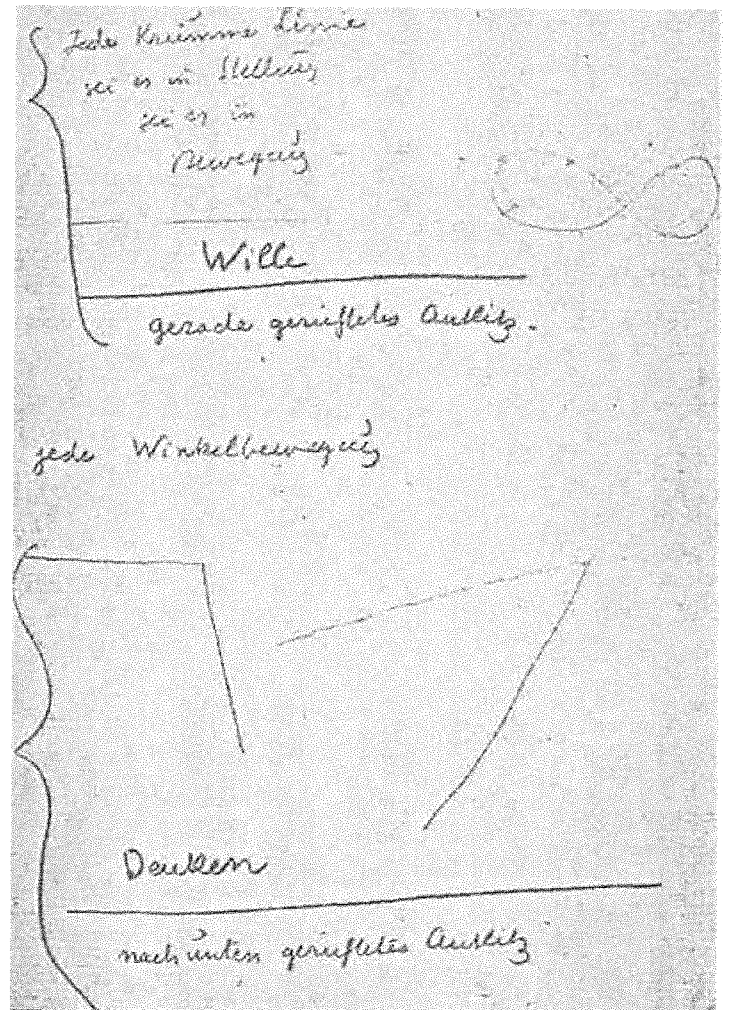 Jede Krumme Linie
sei es in Stellung
sei es in
Bewegung
Wille
gerade gerichtetes Antlitz.
jede Winkelbewegung
Denken
nach unten gerichtetes Antlitz